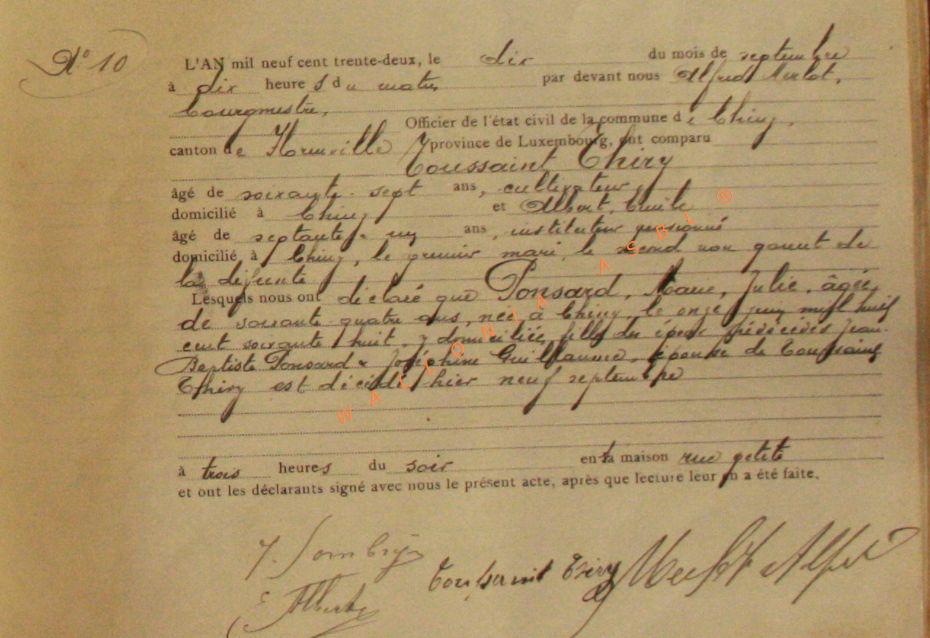 N° 10
L'AN mil neuf cent trente-deux, le dix du mois de septembre
à dix heures du matin par devant nous Alfred Merlot,
bourgmestre,
Officier de l'état civil de la commune de Chiny,
canton de Florenville province de Luxembourg, ont comparu
Toussaint Thiry
âgé de soixante-sept ans, cultivateur,
domicilié à Chiny et Albert, Emile
âgé de septante-un ans, instituteur pensionné
domicilié à Chiny, le premier mari, le second non parent de
la défunte
Lesquels nous ont déclaré que Ponsard, Marie, Julie, âgée
de soixante quatre ans, née à Chiny, le onze juin mil huit
cent soixante huit, y domiciliée, fille des époux prédécédés Jean-
Baptiste Ponsard & Joséphine Guillaume, épouse de Toussaint
Thiry est décédée hier neuf septembre
à trois heures du soir en sa maison rue petite
et ont les déclarants signé avec nous le présent acte, après que lecture leur en a été faite.
E. Albert Toussaint Thiry Merlot Alfred
WALLONIA ASBL ®